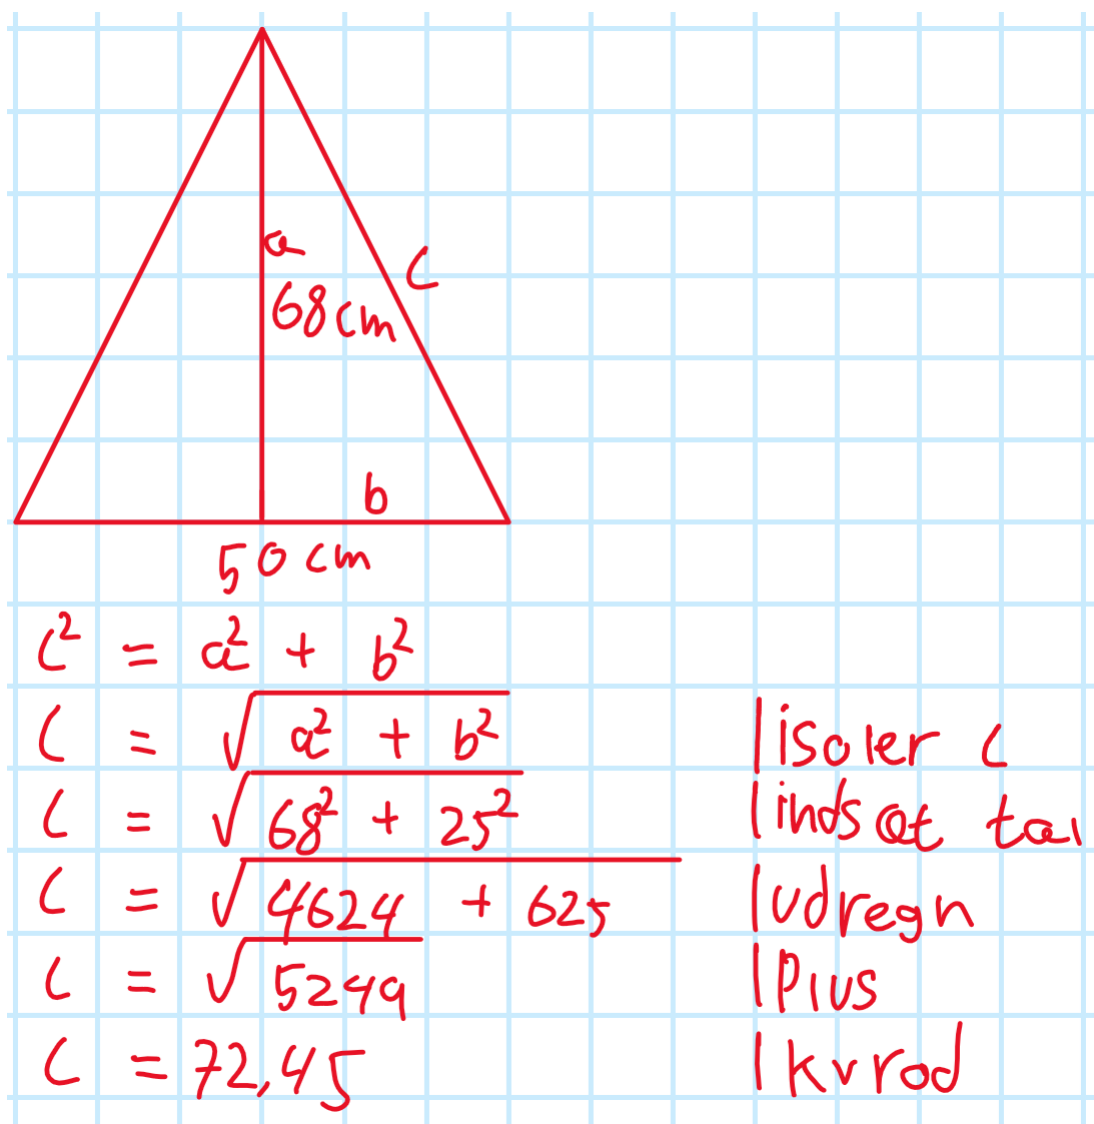 a
c
68 cm
b
50 cm
c² = a² + b²
c = √a² + b² |isoler c
c = √68² + 25² |indsæt tal
c = √4624 + 625 |udregn
c = √5249 |Plus
c = 72,45 |kvrod